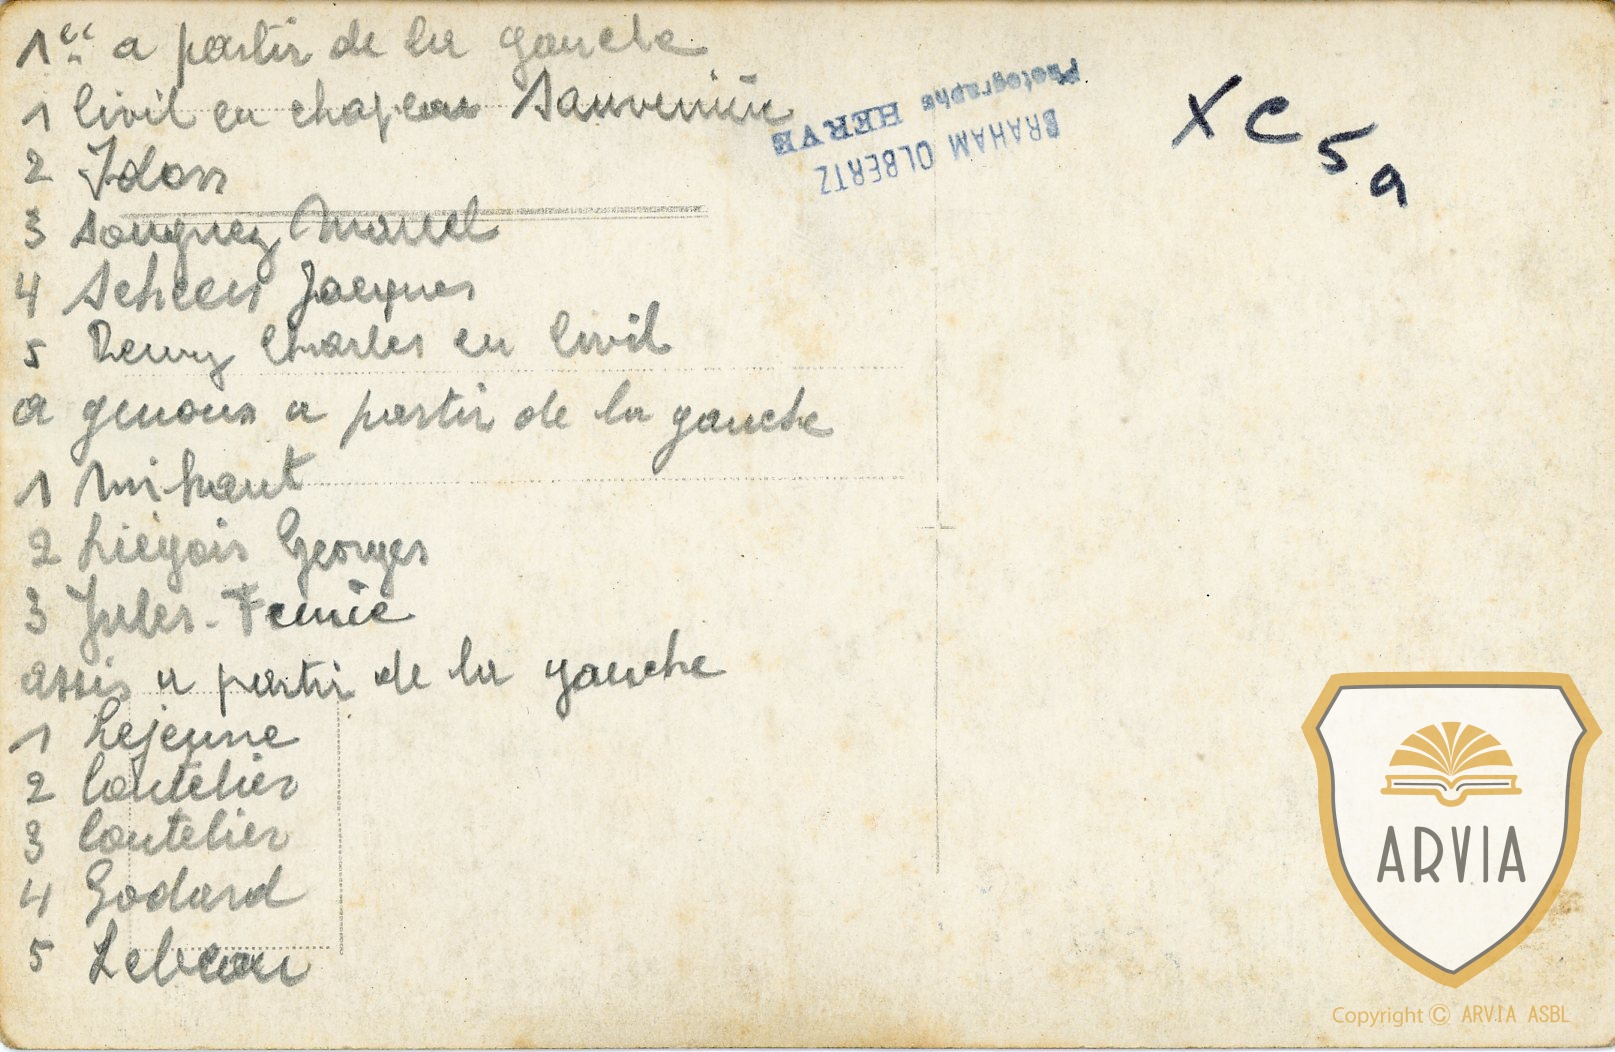 1er a partir de la gauche
1 Civil en chapeau Sauvenière
2 Idon
3 Souguez Marcel
4 Scheen Jacques
5 Remy Charles en Civil
a genoux a partir de la gauche
1
2 Liégois Georges
3 Jules
assis a partir de la gauche
1 Lejeune
2 Coutelier
3 Coutelier
4 Godard
5 Lebeau
Photographe
BRAHAM OLBERTZ
HERVE
XC5a
ARVIA
Copyright © ARVIA ASBL